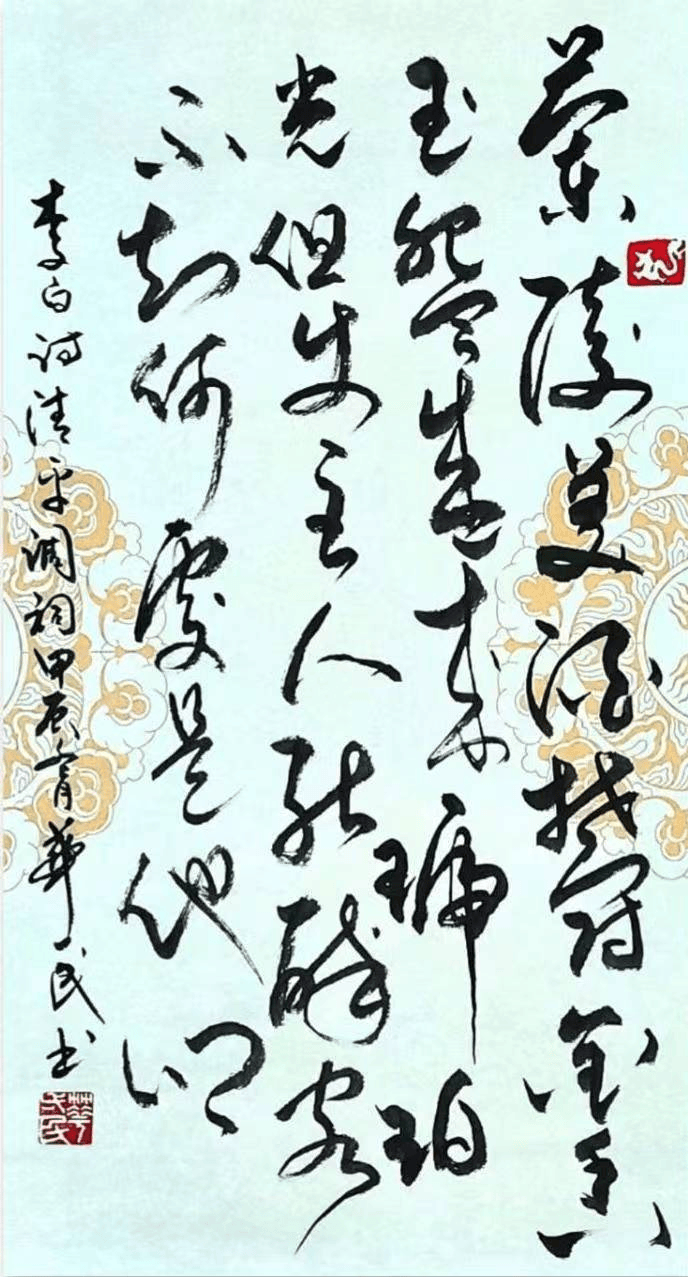 蘭陵美酒鬱金香
玉盌盛来琥珀
光但使主人能醉客
不知何處是他鄉
李白诗清平调词甲辰華民书